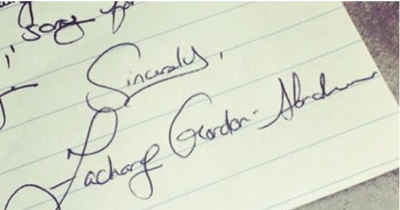 song for
Sincerely,
Zachary Gordon-Abraham